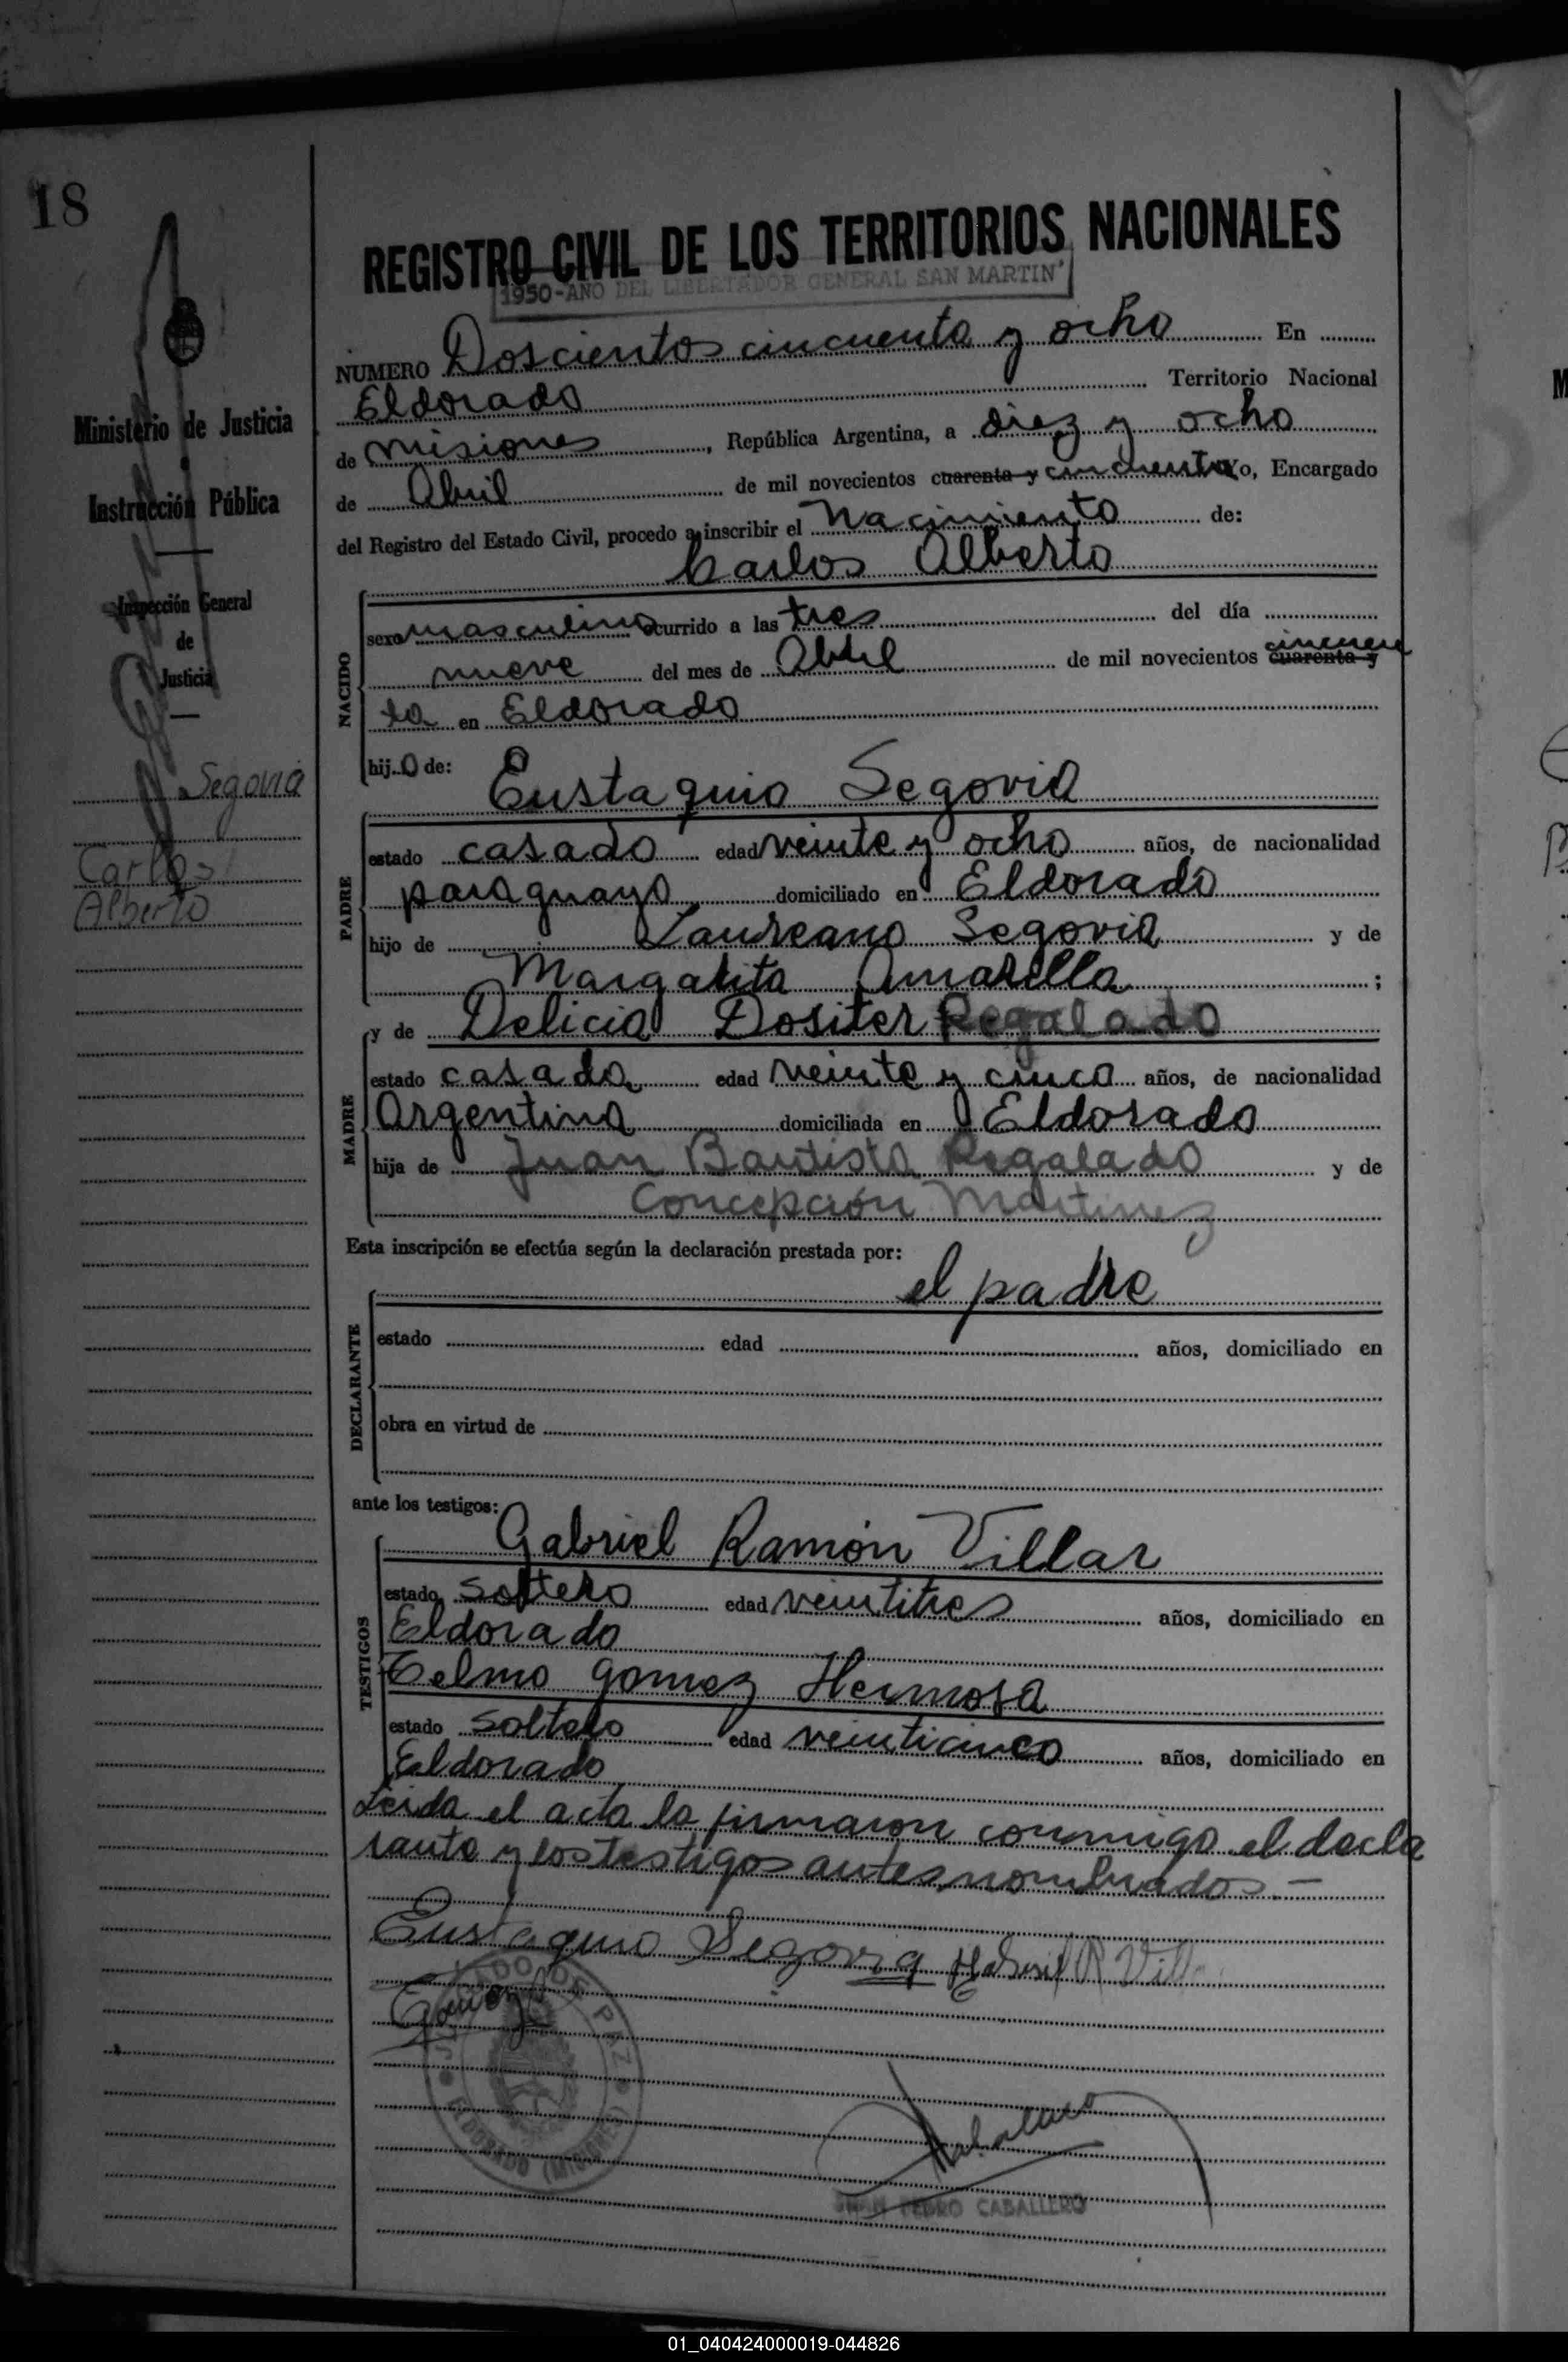 18
Ministerio de Justicia
Instrucción Pública
Inspección General
de
Justicia
Segovia
Carlos
Alberto
REGISTRO CIVIL DE LOS TERRITORIOS NACIONALES
1950-AÑO DEL LIBERTADOR GENERAL SAN MARTIN
NUMERO Doscientos cincuenta y ocho En
Eldorado Territorio Nacional
de Misiones, República Argentina, a diez y ocho
de Abril de mil novecientos cuarenta y cincuenta Yo, Encargado
del Registro del Estado Civil, procedo a inscribir el Nacimiento de:
Carlos Alberto
NACIDO
sexo masculino ocurrido a las tres del día
nueve del mes de Abril de mil novecientos cuarenta y cincuen
ta en Eldorado
hijo de:
Eustaquio Segovia
PADRE
estado casado edad veinte y ocho años, de nacionalidad
paraguayo domiciliado en Eldorado
hijo de Laureano Segovia y de
Margarita Amarilla ;
y de Delicia Dositer Regalado
MADRE
estado casada edad veinte y cinco años, de nacionalidad
Argentina domiciliada en Eldorado
hija de Juan Bautista Regalado y de
Concepción Martinez
Esta inscripción se efectúa según la declaración prestada por:
el padre
DECLARANTE
estado edad años, domiciliado en
obra en virtud de
ante los testigos:
Gabriel Ramón Villar
TESTIGOS
estado soltero edad veintitres años, domiciliado en
Eldorado
Telmo Gomez Hermosa
estado soltero edad veinticinco años, domiciliado en
Eldorado
Leida el acta la firmaron conmigo el decla
rante y los testigos antes nombrados.—
Eustaquio Segovia Gabriel R Vill
Gomez
JUZGADO DE PAZ
ELDORADO (MISIONES)
Caballero
JUAN PEDRO CABALLERO
01_040424000019-044826